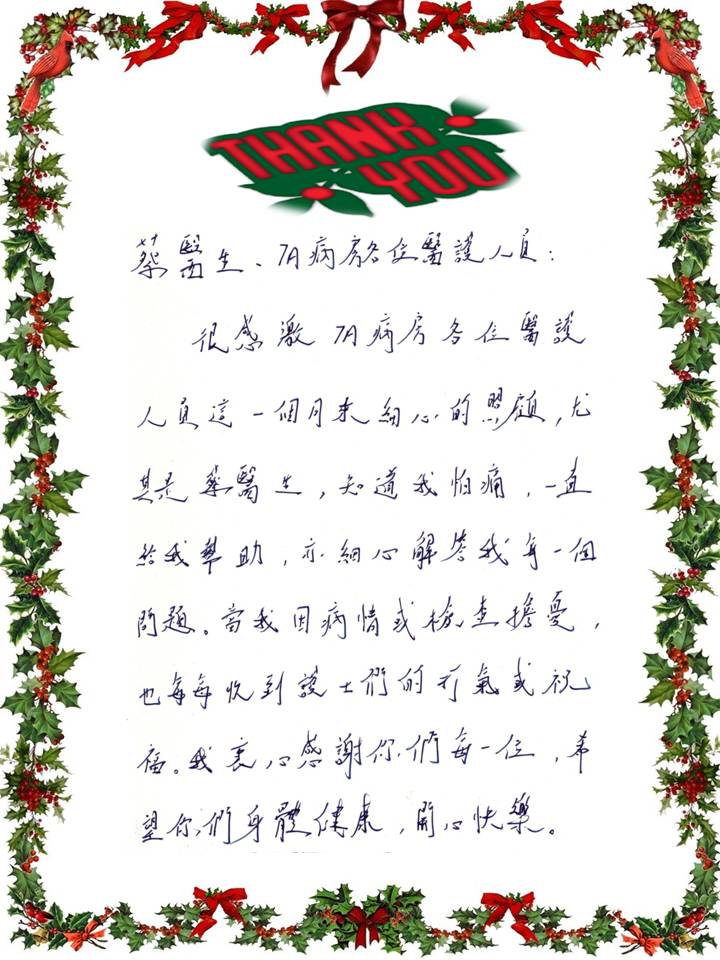 THANK
YOU
蔡醫生、7A病房各位醫護人員：
很感激7A病房各位醫護
人員這一個月來細心的照顧，尤
其是蔡醫生，知道我怕痛，一直
給我幫助，亦細心解答我每一個
問題。當我因病情或檢查擔憂，
也每每收到護士們的打氣或祝
福。我衷心感謝你們每一位，希
望你們身體健康，開心快樂。